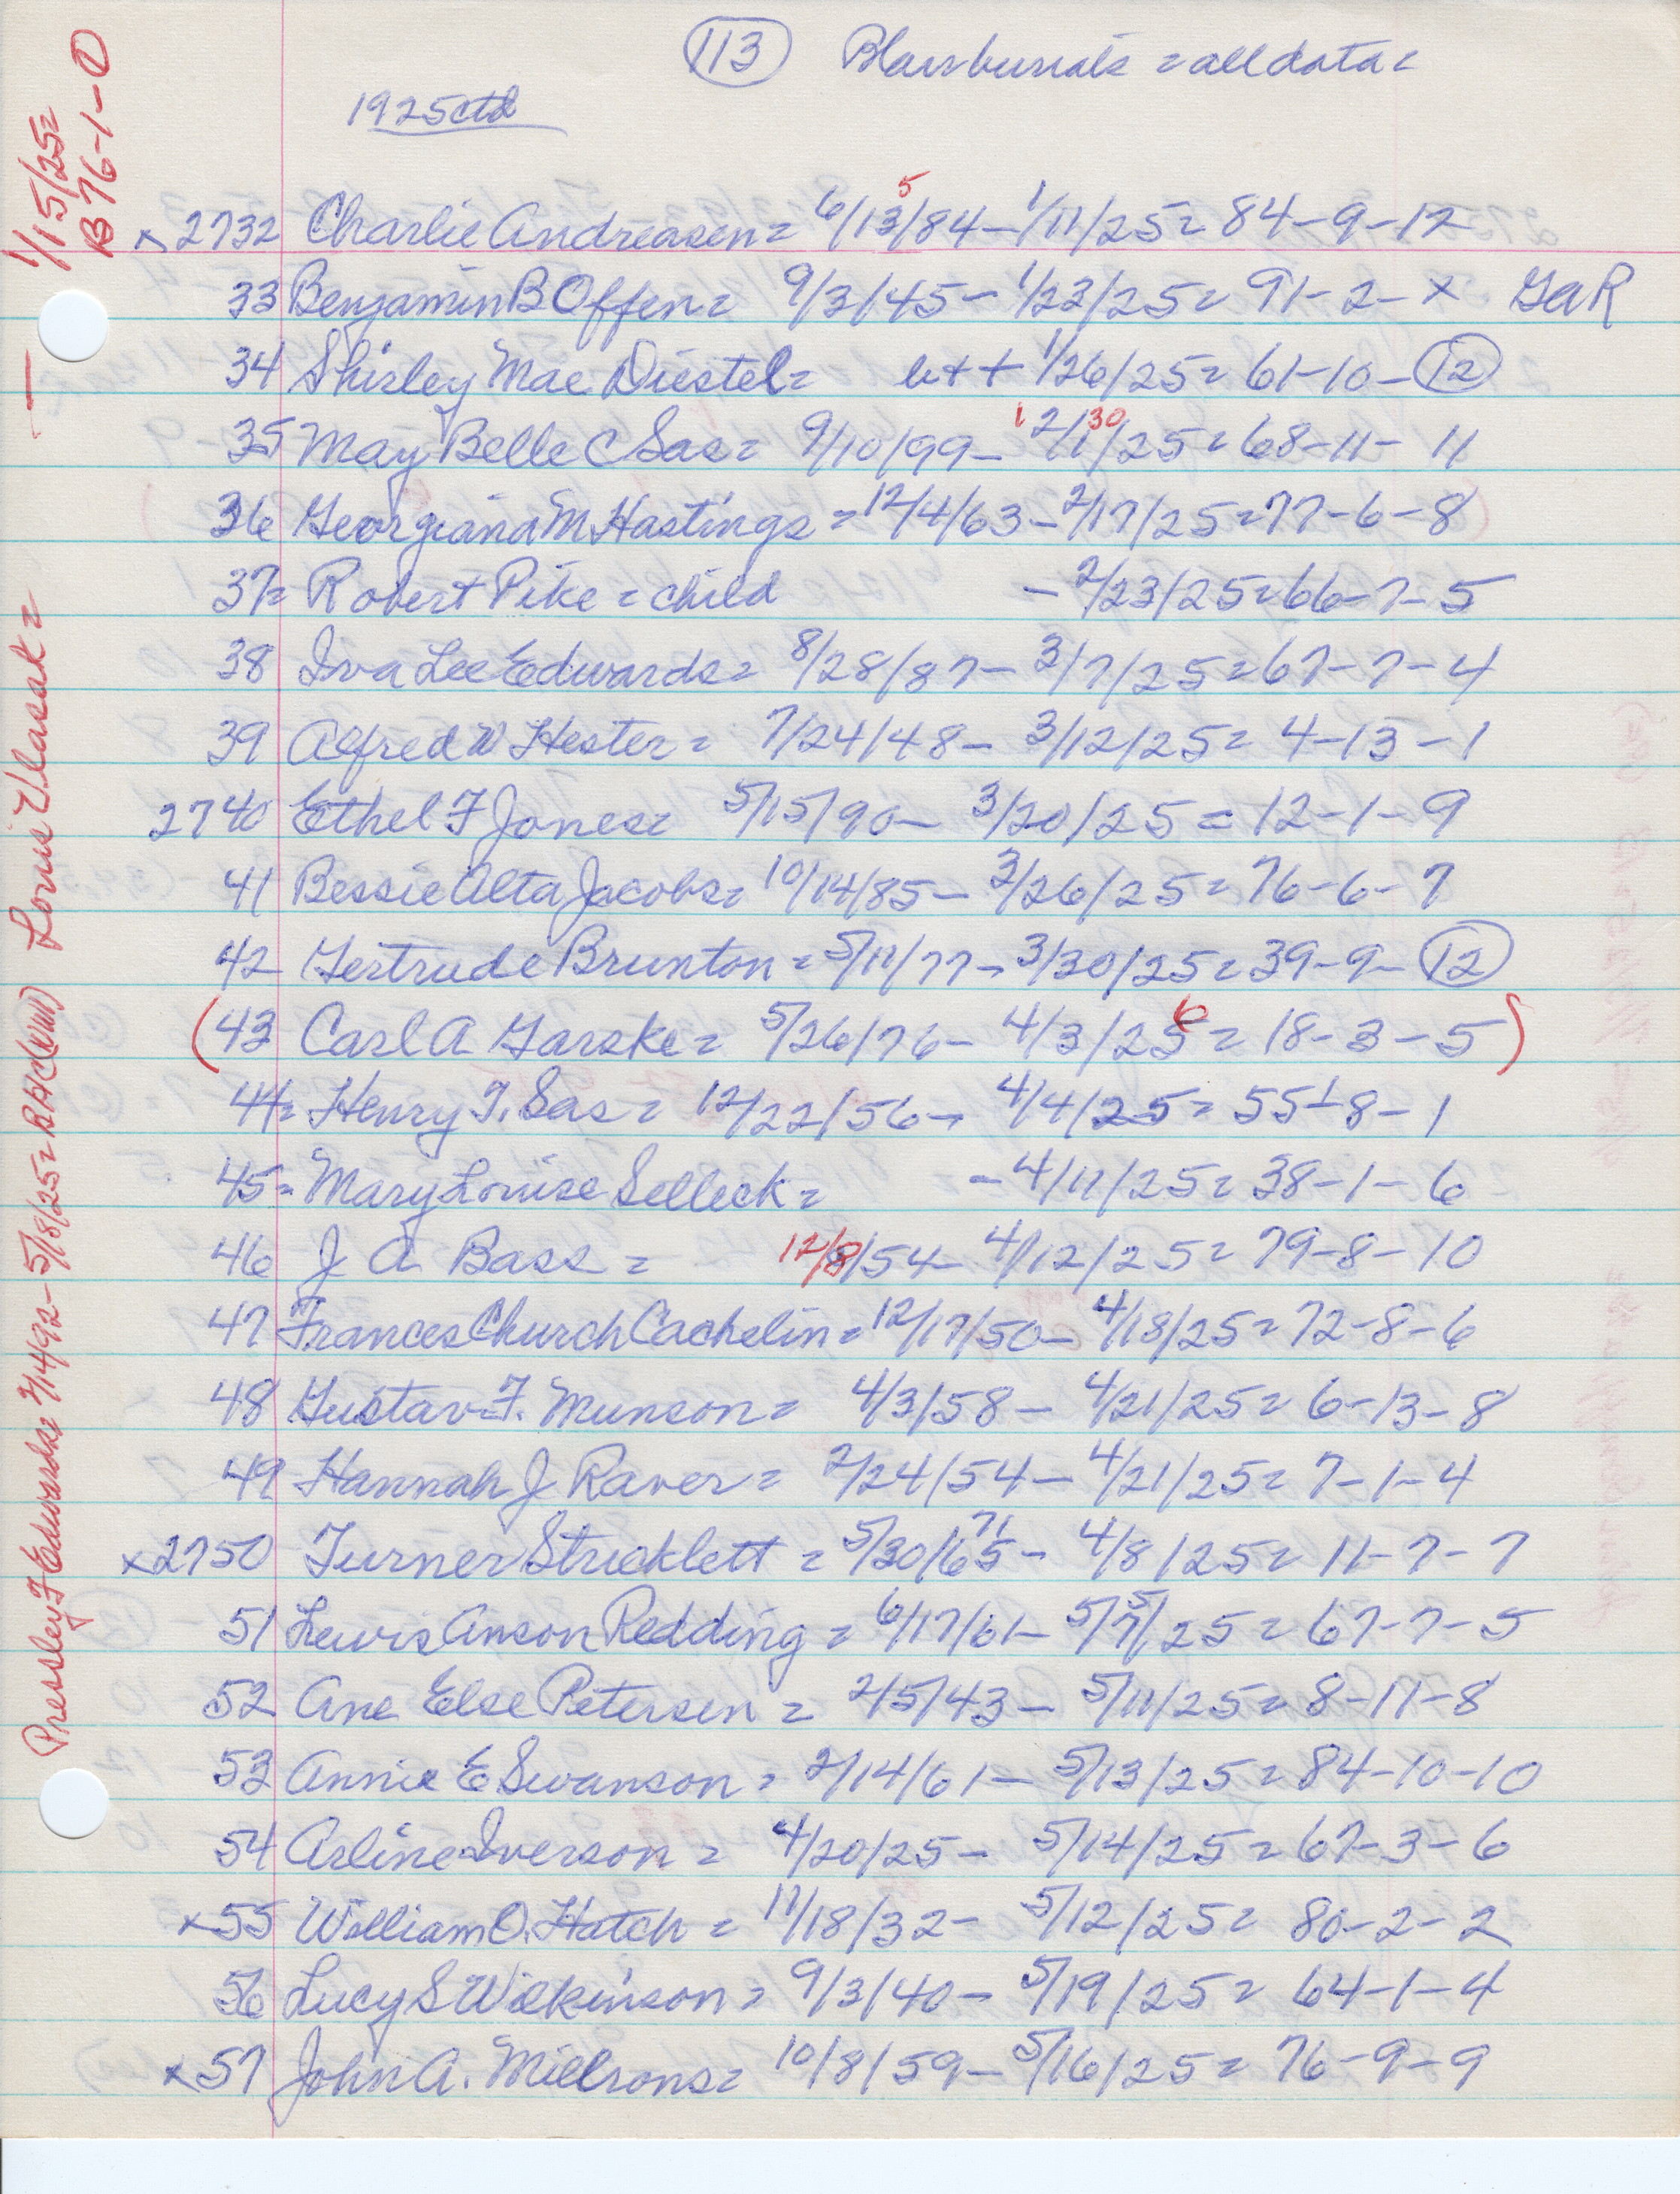 (113) Blair burials = all data =
1925 ctd
x 2732 Charlie Andreasen = 6/13/84 - 1/11/25 = 84-9-12
5
33 Benjamin B Offen = 9/3/45 - 1/23/25 = 91-2-x GaR
34 Shirley Mae Diestel = b++ 1/26/25 = 61-10-(12)
35 May Belle C Sas = 9/10/99 - 2/1/25 = 68-11-11
1 30
36 Georgiana M Hastings = 12/4/63 - 2/17/25 = 77-6-8
37 = Robert Pike = child - 2/23/25 = 66-7-5
38 Iva Lee Edwards = 8/28/87 - 3/7/25 = 67-7-4
39 Alfred W Hester = 7/24/48 - 3/12/25 = 4-13-1
2740 Ethel F Jones = 5/15/90 - 3/20/25 = 12-1-9
41 Bessie Alta Jacobs = 10/14/85 - 3/26/25 = 76-6-7
42 Gertrude Brunton = 5/11/77 - 3/30/25 = 39-9-(12)
(43 Carl A Garske = 5/26/76 - 4/3/25 = 18-3-5)
6
44 = Henry T. Sas = 12/22/56 - 4/4/25 = 55-8-1
45 = Mary Louise Selleck = - 4/11/25 = 38-1-6
46 J A Bass = 12/8/54 - 4/12/25 = 79-8-10
47 Frances Church Cachelin = 12/17/50 - 4/18/25 = 72-8-6
48 Gustav F. Munson = 4/3/58 - 4/21/25 = 6-13-8
49 Hannah J Raver = 2/24/54 - 4/21/25 = 7-1-4
x 2750 Turner Stricklett = 5/30/65 - 4/8/25 = 11-7-7
71
51 Lewis Anson Redding = 6/17/61 - 5/7/25 = 67-7-5
5
52 Ane Else Petersen = 2/5/43 - 5/11/25 = 8-11-8
53 Annie E Swanson = 2/14/61 - 5/13/25 = 84-10-10
54 Arline Iverson = 4/20/25 - 5/14/25 = 67-3-6
x 55 William O. Hatch = 11/18/32 - 5/12/25 = 80-2-2
56 Lucy S Wilkinson = 9/3/40 - 5/19/25 = 64-1-4
x 57 John A. Millrons = 10/8/59 - 5/16/25 = 76-9-9
Pressley F Edwards, 7/14/92 - 5/18/25 = Louis Vlasak = — 1/15/25 =
B 76-1-0